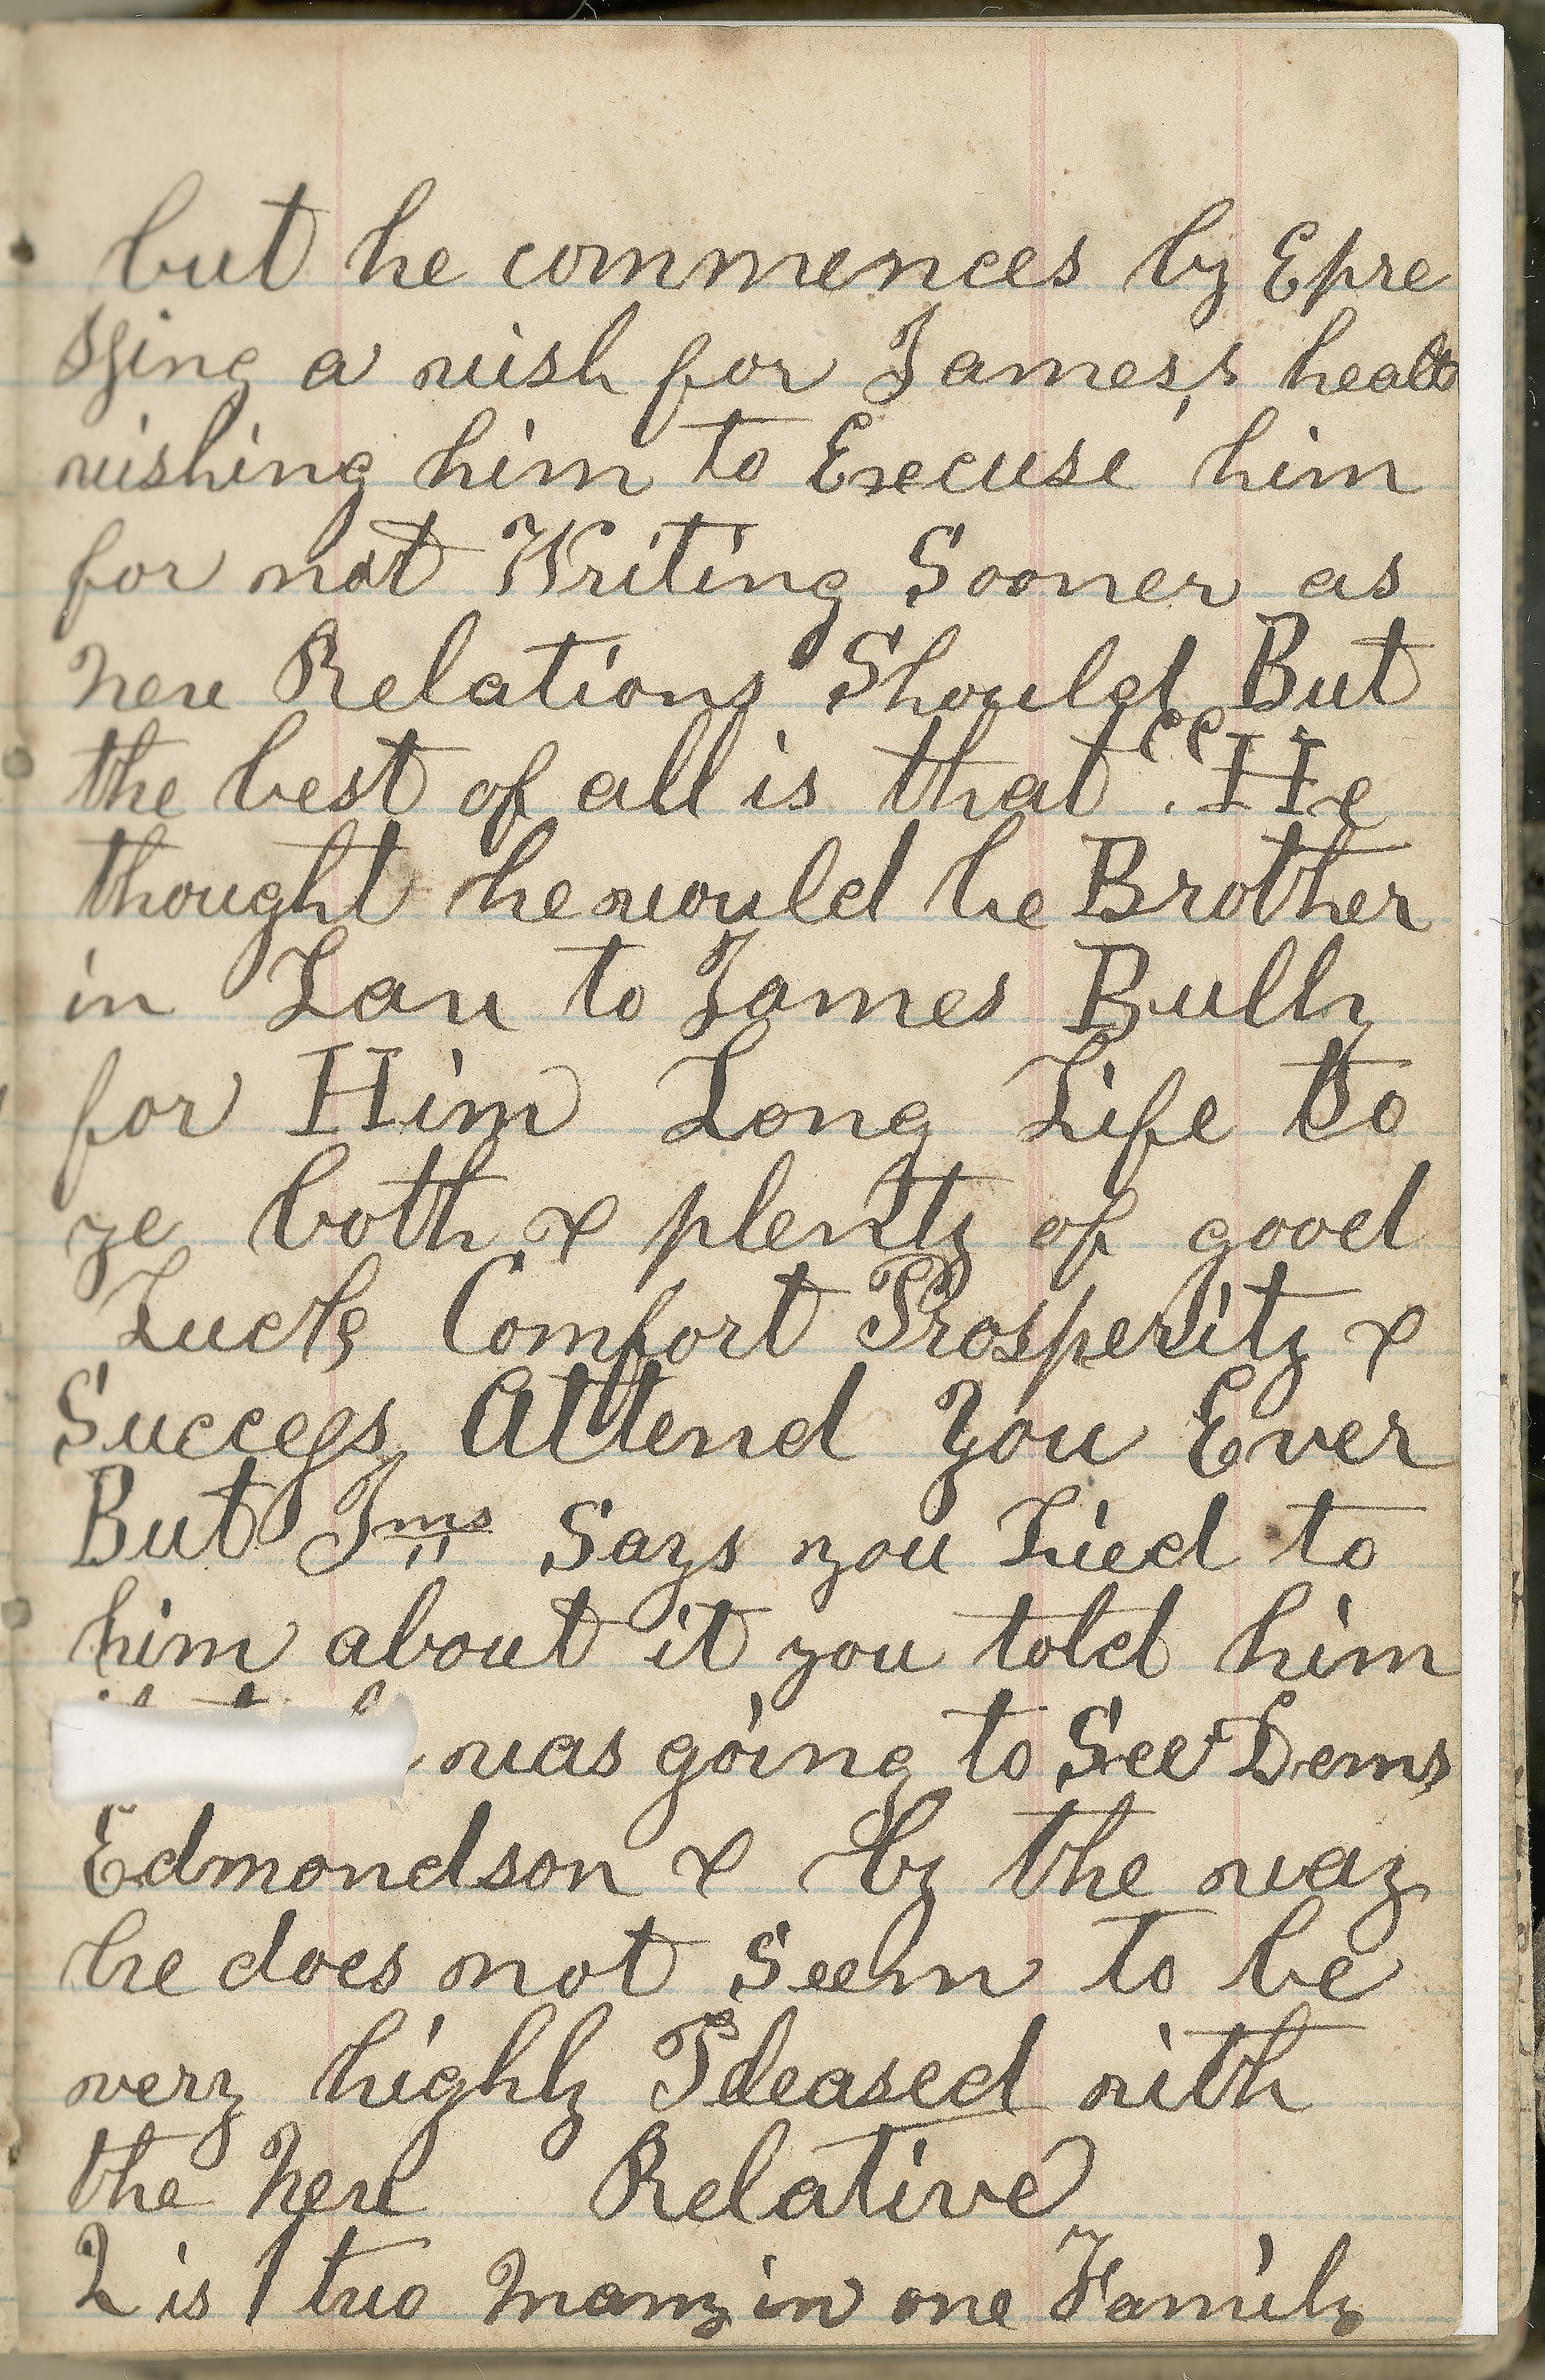 but he commences by Epre
ssing a wish for James,s healt
wishing him to Execuse him
for not Writing Sooner as
new Relations Should But
the best of all is that "He
thought he would be Brother
in Law to James Bully
for Him Long Life to
ye both & plenty of good
Lucks Comfort Prosperity &
Success Attend You Ever
But Jms Says you Lied to
him about it you told him
was going to See Dems
Edmondson & by the way
he does not Seem to be
very highly Pleased with
the New Relative
2 is 1 two Many in one Family